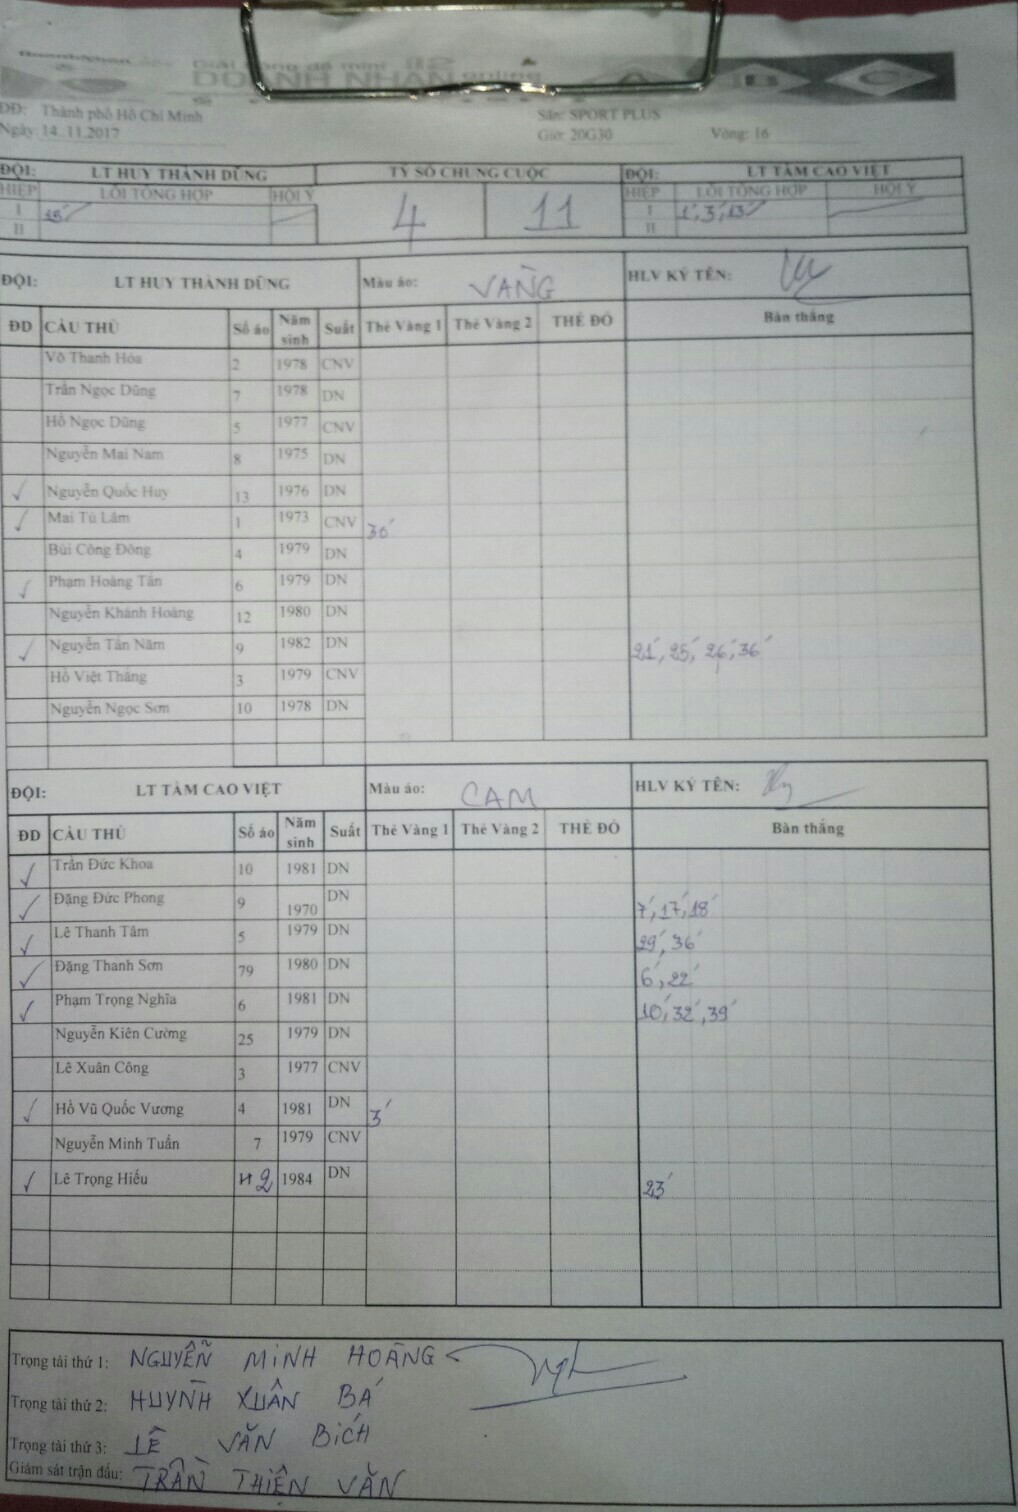 DOANH NHÂN
A B C
ĐĐ: Thành phố Hồ Chí Minh Sân: SPORT PLUS
Ngày 14..11.2017 Giờ: 20G30 Vòng: 16
ĐỘI: LT HUY THÀNH DŨNG TỶ SỐ CHUNG CUỘC ĐỘI: LT TẦM CAO VIỆT
HIỆP LỖI TỔNG HỢP HỘI Ý 4 11 HIỆP LỖI TỔNG HỢP HỘI Ý
I 15' I 1', 3', 13'
II II
ĐỘI: LT HUY THÀNH DŨNG Màu áo: VÀNG HLV KÝ TÊN:
ĐD CẦU THỦ Số áo Năm sinh Suất Thẻ Vàng 1 Thẻ Vàng 2 THẺ ĐỎ Bàn thắng
Võ Thanh Hóa 2 1978 CNV
Trần Ngọc Dũng 7 1978 DN
Hồ Ngọc Dũng 5 1977 CNV
Nguyễn Mai Nam 8 1975 DN
✓ Nguyễn Quốc Huy 13 1976 DN
✓ Mai Tú Lâm 1 1973 CNV 30'
Bùi Công Đông 4 1979 DN
✓ Phạm Hoàng Tấn 6 1979 DN
Nguyễn Khánh Hoàng 12 1980 DN
✓ Nguyễn Tấn Năm 9 1982 DN 21', 25', 26', 36'
Hồ Việt Thắng 3 1979 CNV
Nguyễn Ngọc Sơn 10 1978 DN
ĐỘI: LT TẦM CAO VIỆT Màu áo: CAM HLV KÝ TÊN:
ĐD CẦU THỦ Số áo Năm sinh Suất Thẻ Vàng 1 Thẻ Vàng 2 THẺ ĐỎ Bàn thắng
✓ Trần Đức Khoa 10 1981 DN
✓ Đặng Đức Phong 9 1970 DN 7', 17', 18'
✓ Lê Thanh Tâm 5 1979 DN 29', 36'
✓ Đặng Thanh Sơn 79 1980 DN 6', 22'
✓ Phạm Trọng Nghĩa 6 1981 DN 10', 32', 39'
Nguyễn Kiên Cường 25 1979 DN
Lê Xuân Công 3 1977 CNV
✓ Hồ Vũ Quốc Vương 4 1981 DN 3'
Nguyễn Minh Tuấn 7 1979 CNV
✓ Lê Trọng Hiếu 2 1984 DN 23'
Trọng tài thứ 1: NGUYỄN MINH HOÀNG
Trọng tài thứ 2: HUỲNH XUÂN BÁ
Trọng tài thứ 3: LÊ VĂN BÍCH
Giám sát trận đấu: TRẦN THIỆN VĂN